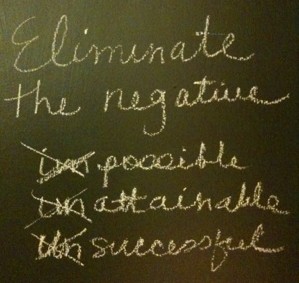 Eliminate
the negative
impossible
unattainable
unsuccessful